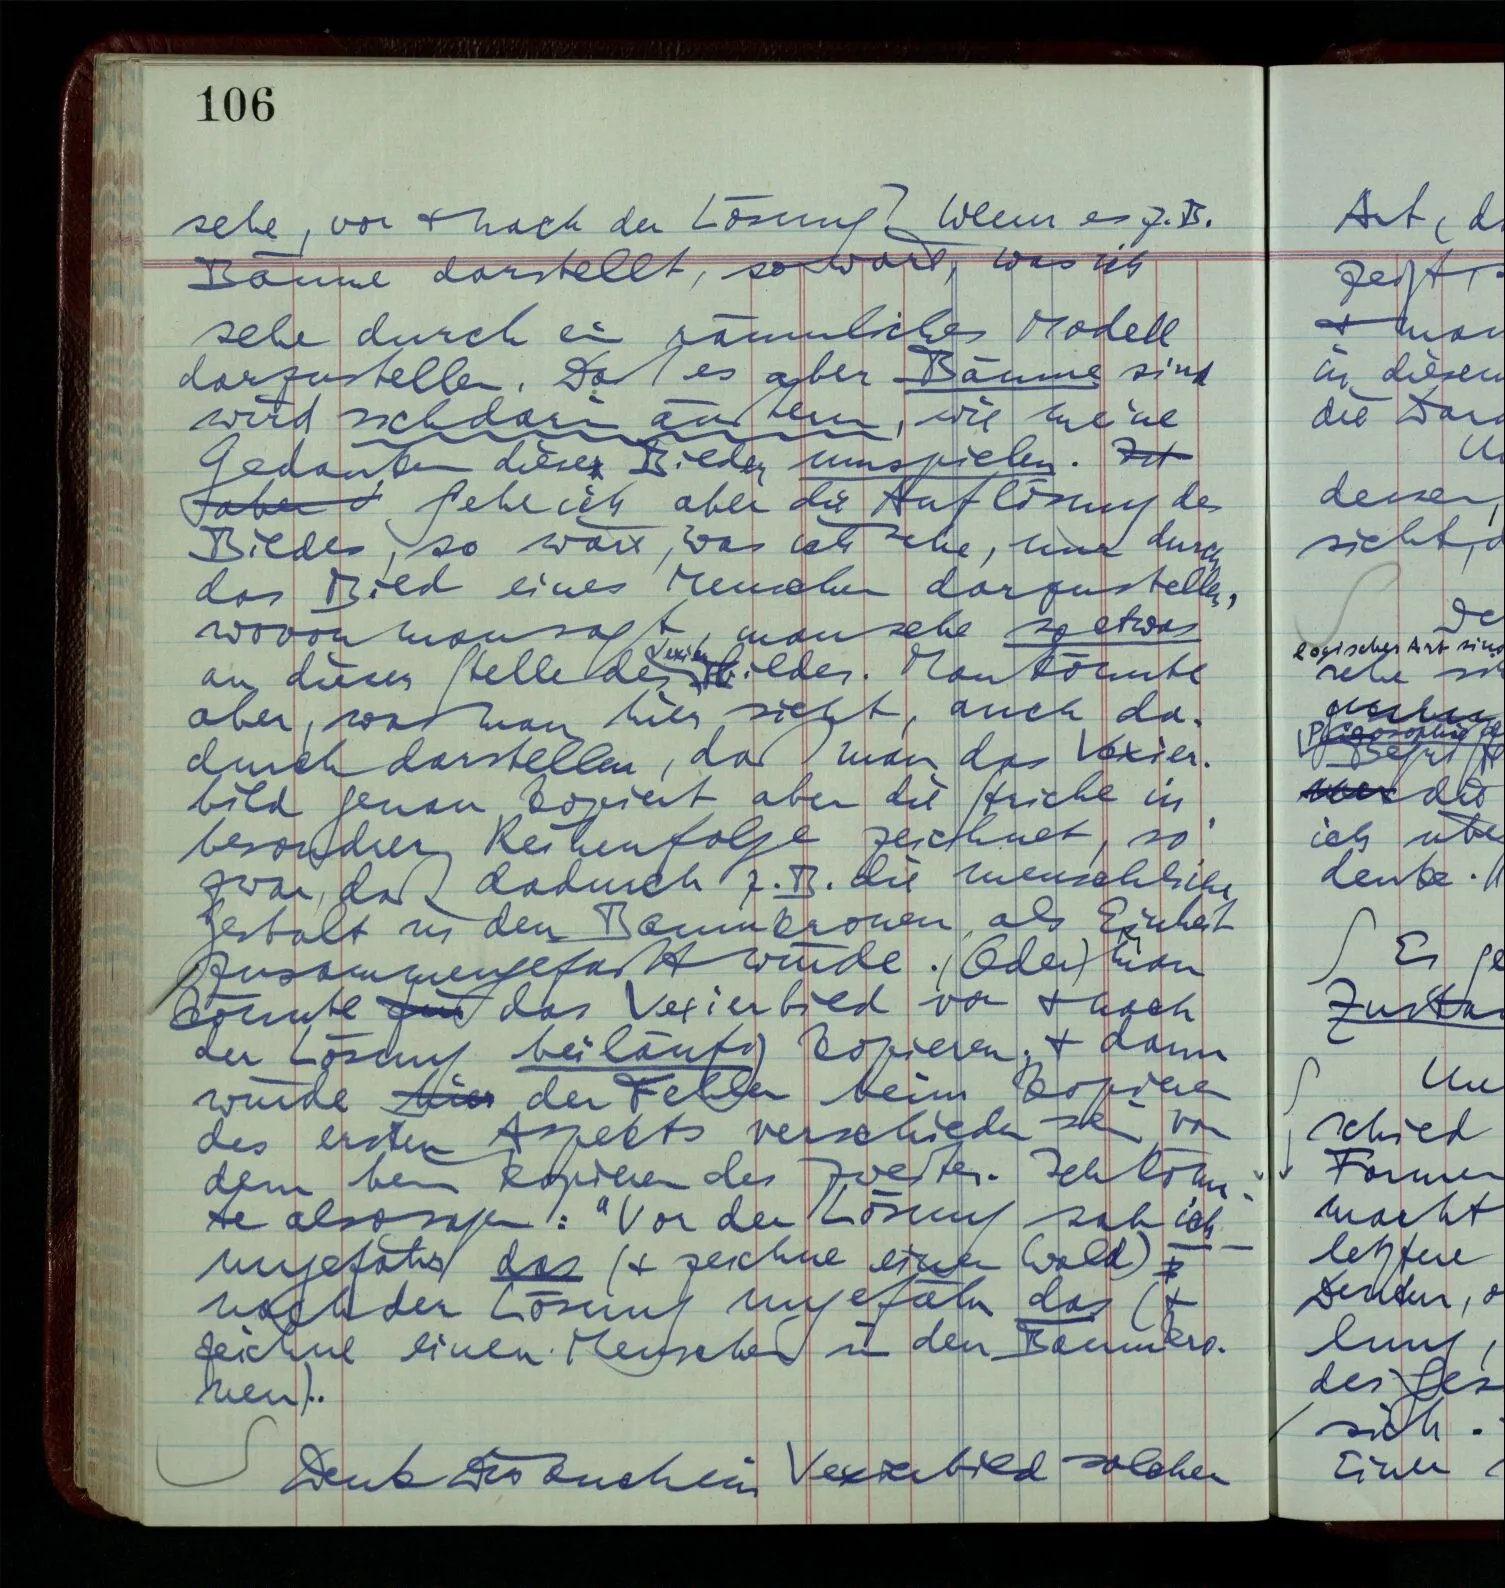 106
sehe, vor & nach der Lösung? Wenn es z.B.
Bäume darstellt, so wäre, was ich
sehe durch ein räumliches Modell
darzustellen. Daß es aber Bäume sind
wird sich darin äußern, wie meine
Gedanken dieses Bild umspielen. Ist
aber d Sehe ich aber die Auflösung des
Bildes, so wäre, was ich sehe, nur durch
das Bild eines Menschen darzustellen,
wovon man sagt, man sehe so etwas
an dieser Stelle des Vexierbildes. Man könnte
aber, was man hier sieht, auch da-
durch darstellen, daß man das Vexier-
bild genau kopiert aber die Striche in
besondrer Reihenfolge zeichnet, so
zwar, daß dadurch z.B. die menschliche
Gestalt in den Baumkronen als Einheit
zusammengefaßt würde. (Oder) man
könnte das Vexierbild vor & nach
der Lösung beiläufig kopieren; & dann
würde hier der Fehler beim Kopieren
des ersten Aspekts verschieden sein von
dem beim Kopieren des zweiten. Ich könn-
te also sagen: "Vor der Lösung sah ich
ungefähr das (& zeichne einen Wald) –
nach der Lösung ungefähr das (&
zeichne einen Menschen in den Baumkro-
nen).
Denk Dir auch ein Vexierbild solcher
Art, d
zeigt,
& man
in diesem
die Dar
dessen,
sicht, d
De
logischer Art sind
sehe
Begriff
die
ich übe
denke.
Es ge
Zustan
Un
schied
Formen
macht
letztere
Denken, o
lung,
des Ges
sich.
Einer